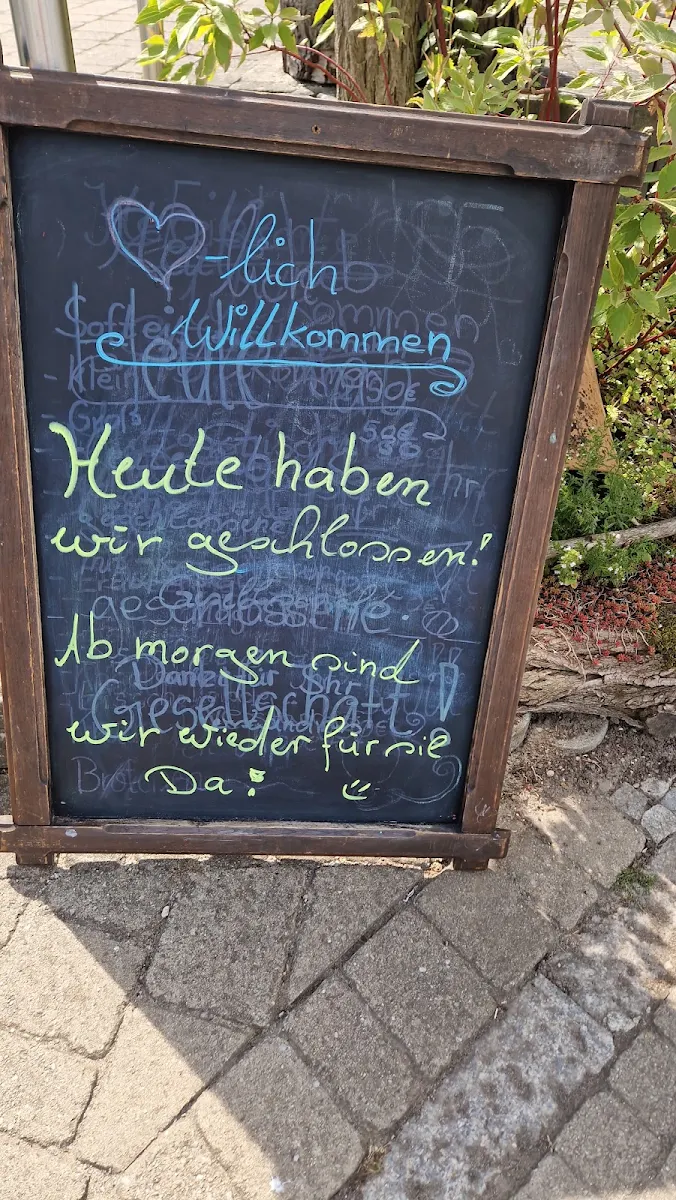 ♡-lich
Willkommen
Heute haben
wir geschlossen!
Ab morgen sind
wir wieder für sie
Da!